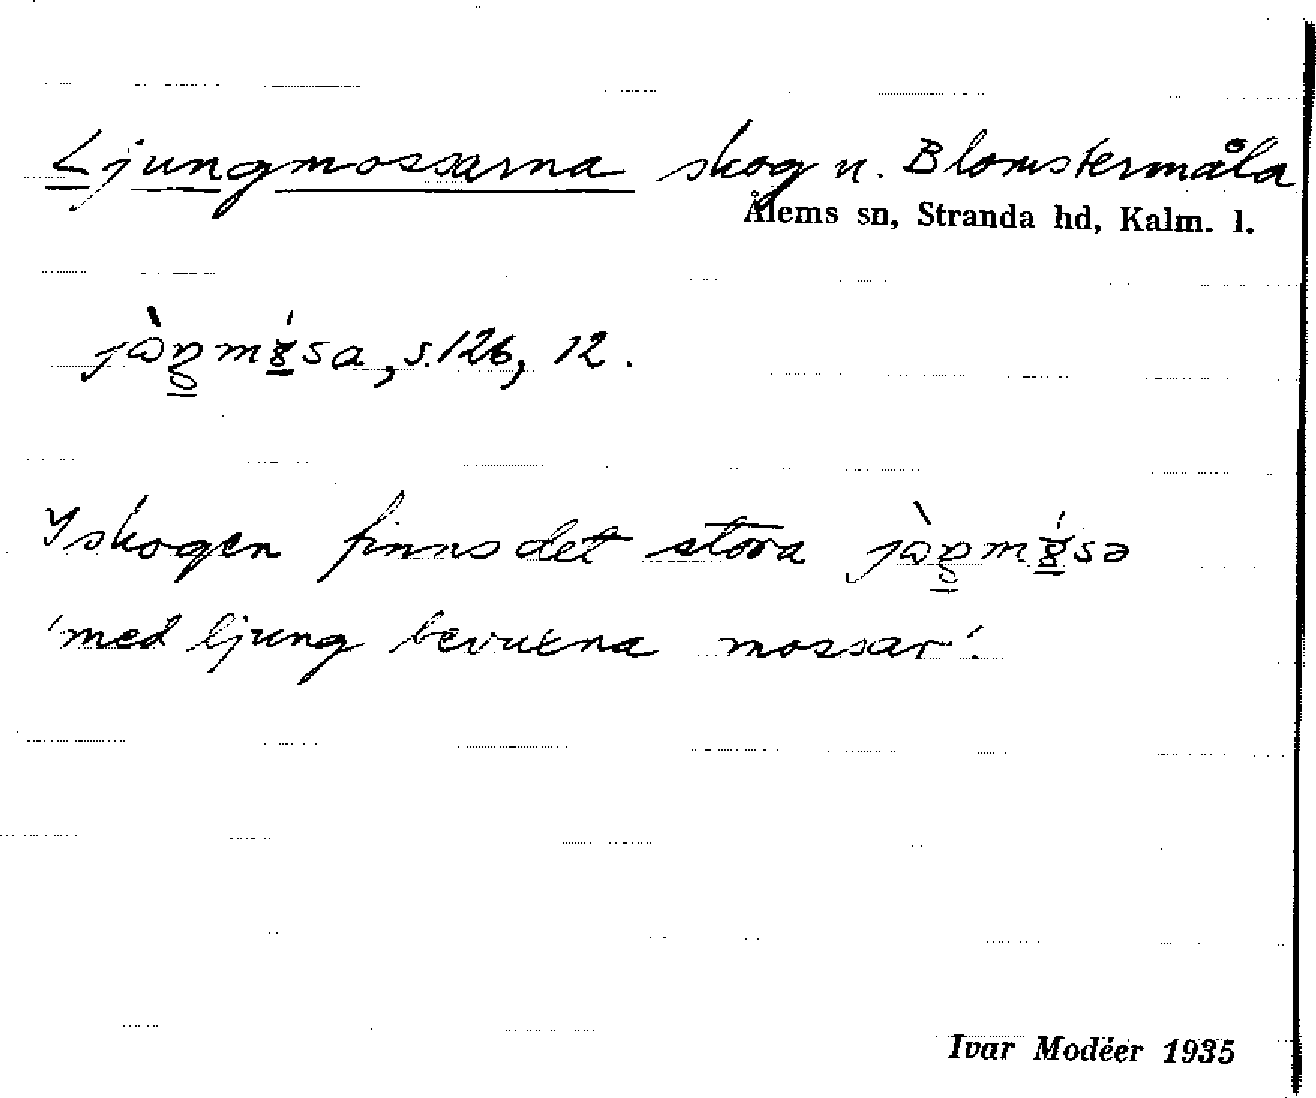 Ljungmossarna skog u. Blomstermåla
Ålems sn, Stranda hd, Kalm. l.
s. 126, 12.
I skogen finns det stora
'med ljung bevuxna mossar'.
Ivar Modéer 1935